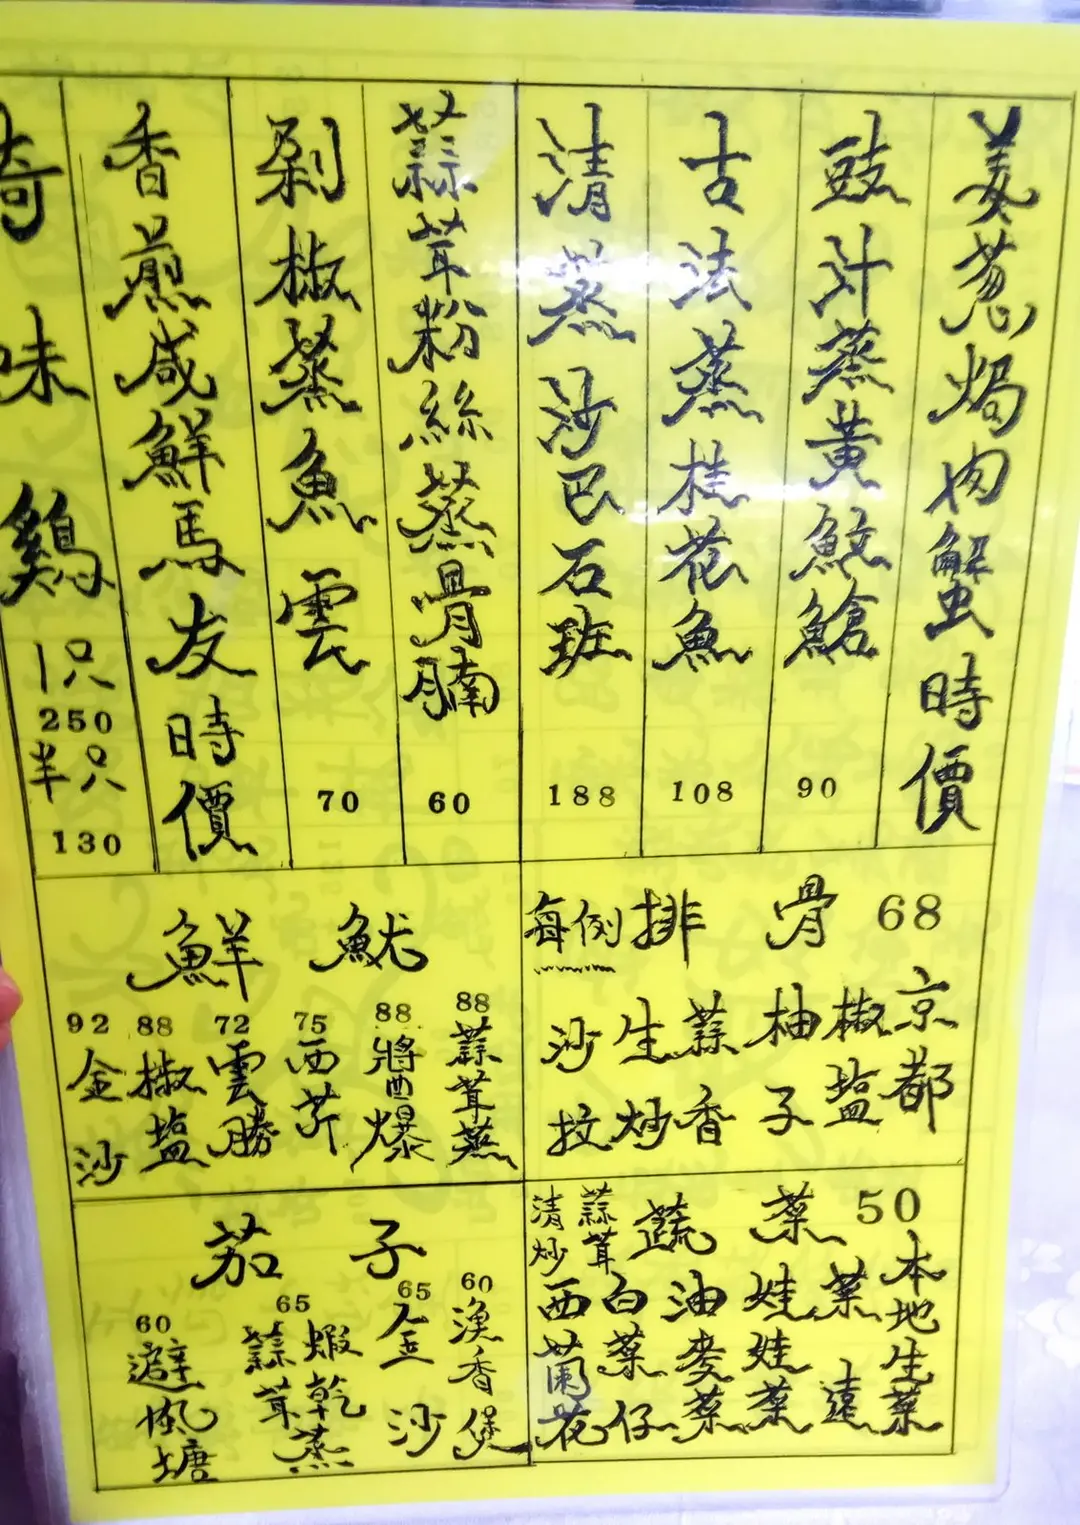 姜葱焗肉蟹時價
豉汁蒸黃鮫鯧 90
古法蒸桂花魚 108
清蒸沙巴石班 188
蒜茸粉絲蒸骨腩 60
剁椒蒸魚雲 70
香煎咸鮮馬友時價
味鷄 1只 250 半只 130
每例 排骨 68
京都
椒塩
柚子
蒜香
生炒
沙拉
鮮魷
88 蒜茸蒸
88 將酉爆
75 西芹
72 雲勝
88 椒塩
92 金沙
蔬菜 50
清炒
蒜茸
本地生菜
菜遠
娃娃菜
油麥菜
白菜仔
西蘭花
茄子
60 漁香煲
65 金沙
65 蝦乾蒜茸蒸
60 避風塘